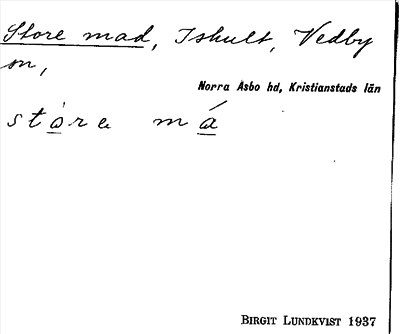 Store mad, Ishult, Vedby
sn,
Norra Åsbo hd, Kristianstads län
stòra má
BIRGIT LUNDKVIST 1937